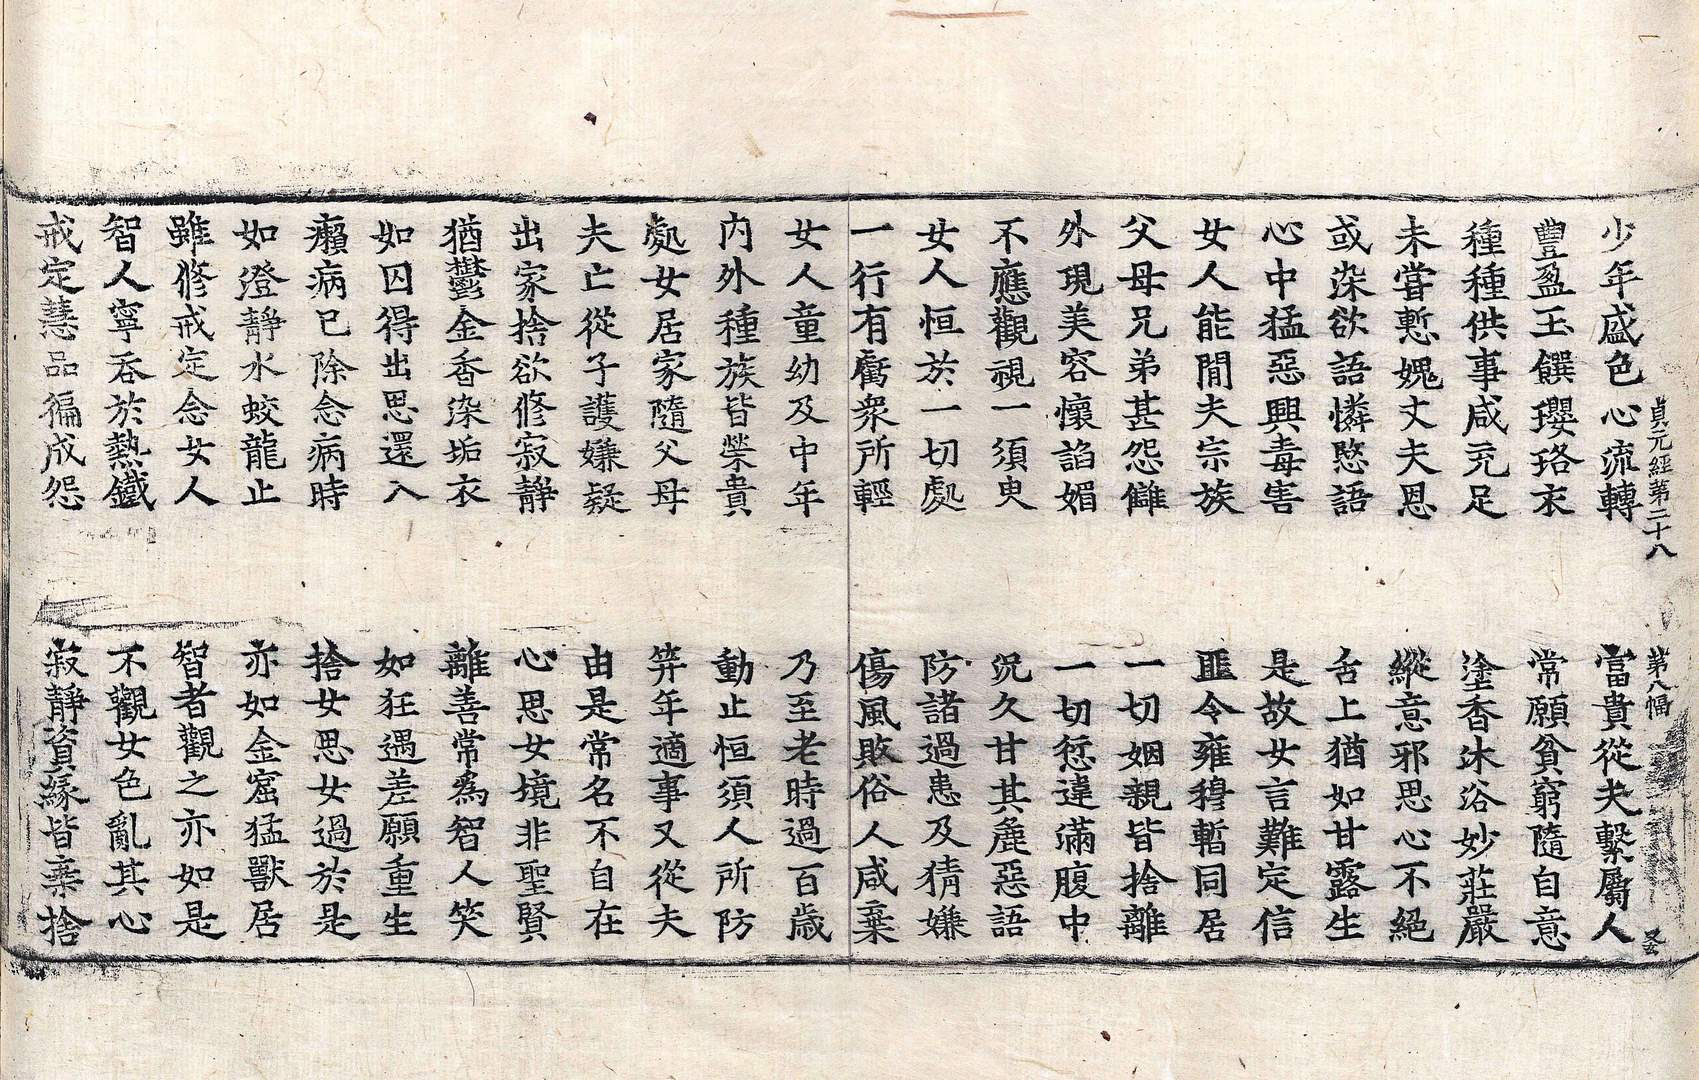 貞元經第二十八 第八幅
少年盛色心流轉 富貴從夫繫屬人
豐盈玉饌瓔珞衣 常願貧窮隨自意
種種供事咸充足 塗香沐浴妙莊嚴
未嘗慙愧丈夫恩 縱意邪思心不絕
或染欲語憐愍語 舌上猶如甘露生
心中猛惡興毒害 是故女言難定信
女人能間夫宗族 匪令雍穆暫同居
父母兄弟甚怨讎 一切姻親皆捨離
外現美容懷諂媚 一切愆違滿腹中
不應觀視一須臾 況久甘其麁惡語
女人恒於一切處 防諸過患及猜嫌
一行有虧衆所輕 傷風敗俗人咸棄
女人童幼及中年 乃至老時過百歲
內外種族皆榮貴 動止恒須人所防
處女居家隨父母 笄年適事又從夫
夫亡從子護嫌疑 由是常名不自在
出家捨欲修寂靜 心思女境非聖賢
猶鬱金香染垢衣 離善常爲智人笑
如囚得出思還入 如狂遇差願重生
癩病已除念病時 捨女思女過於是
如澄靜水蛟龍止 亦如金窟猛獸居
雖修戒定念女人 智者觀之亦如是
智人寧吞於熱鐵 不觀女色亂其心
戒定慧品徧成怨 寂靜資緣皆棄捨